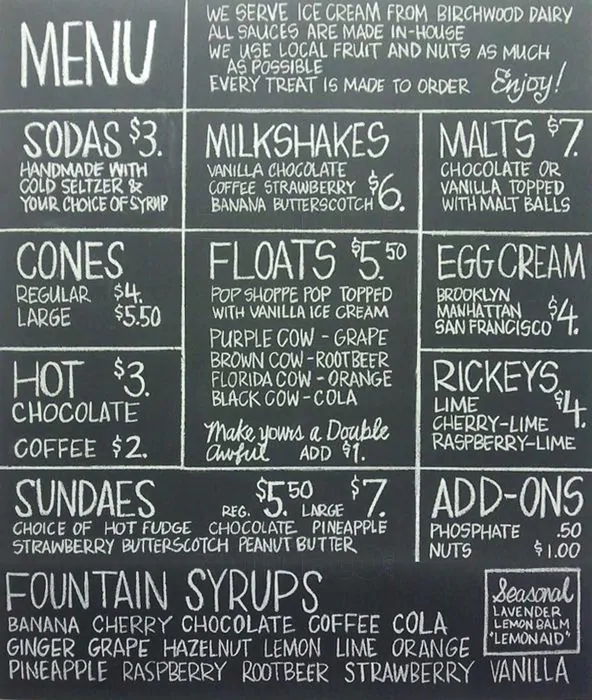 MENU
WE SERVE ICE CREAM FROM BIRCHWOOD DAIRY
ALL SAUCES ARE MADE IN-HOUSE
WE USE LOCAL FRUIT AND NUTS AS MUCH
AS POSSIBLE
EVERY TREAT IS MADE TO ORDER Enjoy!
SODAS $3.
HANDMADE WITH
COLD SELTZER &
YOUR CHOICE OF SYRUP
MILKSHAKES
VANILLA CHOCOLATE
COFFEE STRAWBERRY $6.
BANANA BUTTERSCOTCH
MALTS $7.
CHOCOLATE OR
VANILLA TOPPED
WITH MALT BALLS
CONES
REGULAR $4.
LARGE $5.50
FLOATS $5.50
POP SHOPPE POP TOPPED
WITH VANILLA ICE CREAM
PURPLE COW - GRAPE
BROWN COW - ROOTBEER
FLORIDA COW - ORANGE
BLACK COW - COLA
Make yours a Double
Awful ADD $1.
EGG CREAM
BROOKLYN
MANHATTAN $4.
SAN FRANCISCO
HOT $3.
CHOCOLATE
COFFEE $2.
RICKEYS
LIME $4.
CHERRY-LIME
RASPBERRY-LIME
SUNDAES REG. $5.50 LARGE $7.
CHOICE OF HOT FUDGE CHOCOLATE PINEAPPLE
STRAWBERRY BUTTERSCOTCH PEANUT BUTTER
ADD-ONS
PHOSPHATE .50
NUTS $1.00
FOUNTAIN SYRUPS
BANANA CHERRY CHOCOLATE COFFEE COLA
GINGER GRAPE HAZELNUT LEMON LIME ORANGE
PINEAPPLE RASPBERRY ROOTBEER STRAWBERRY VANILLA
Seasonal
LAVENDER
LEMON BALM
"LEMONAID"